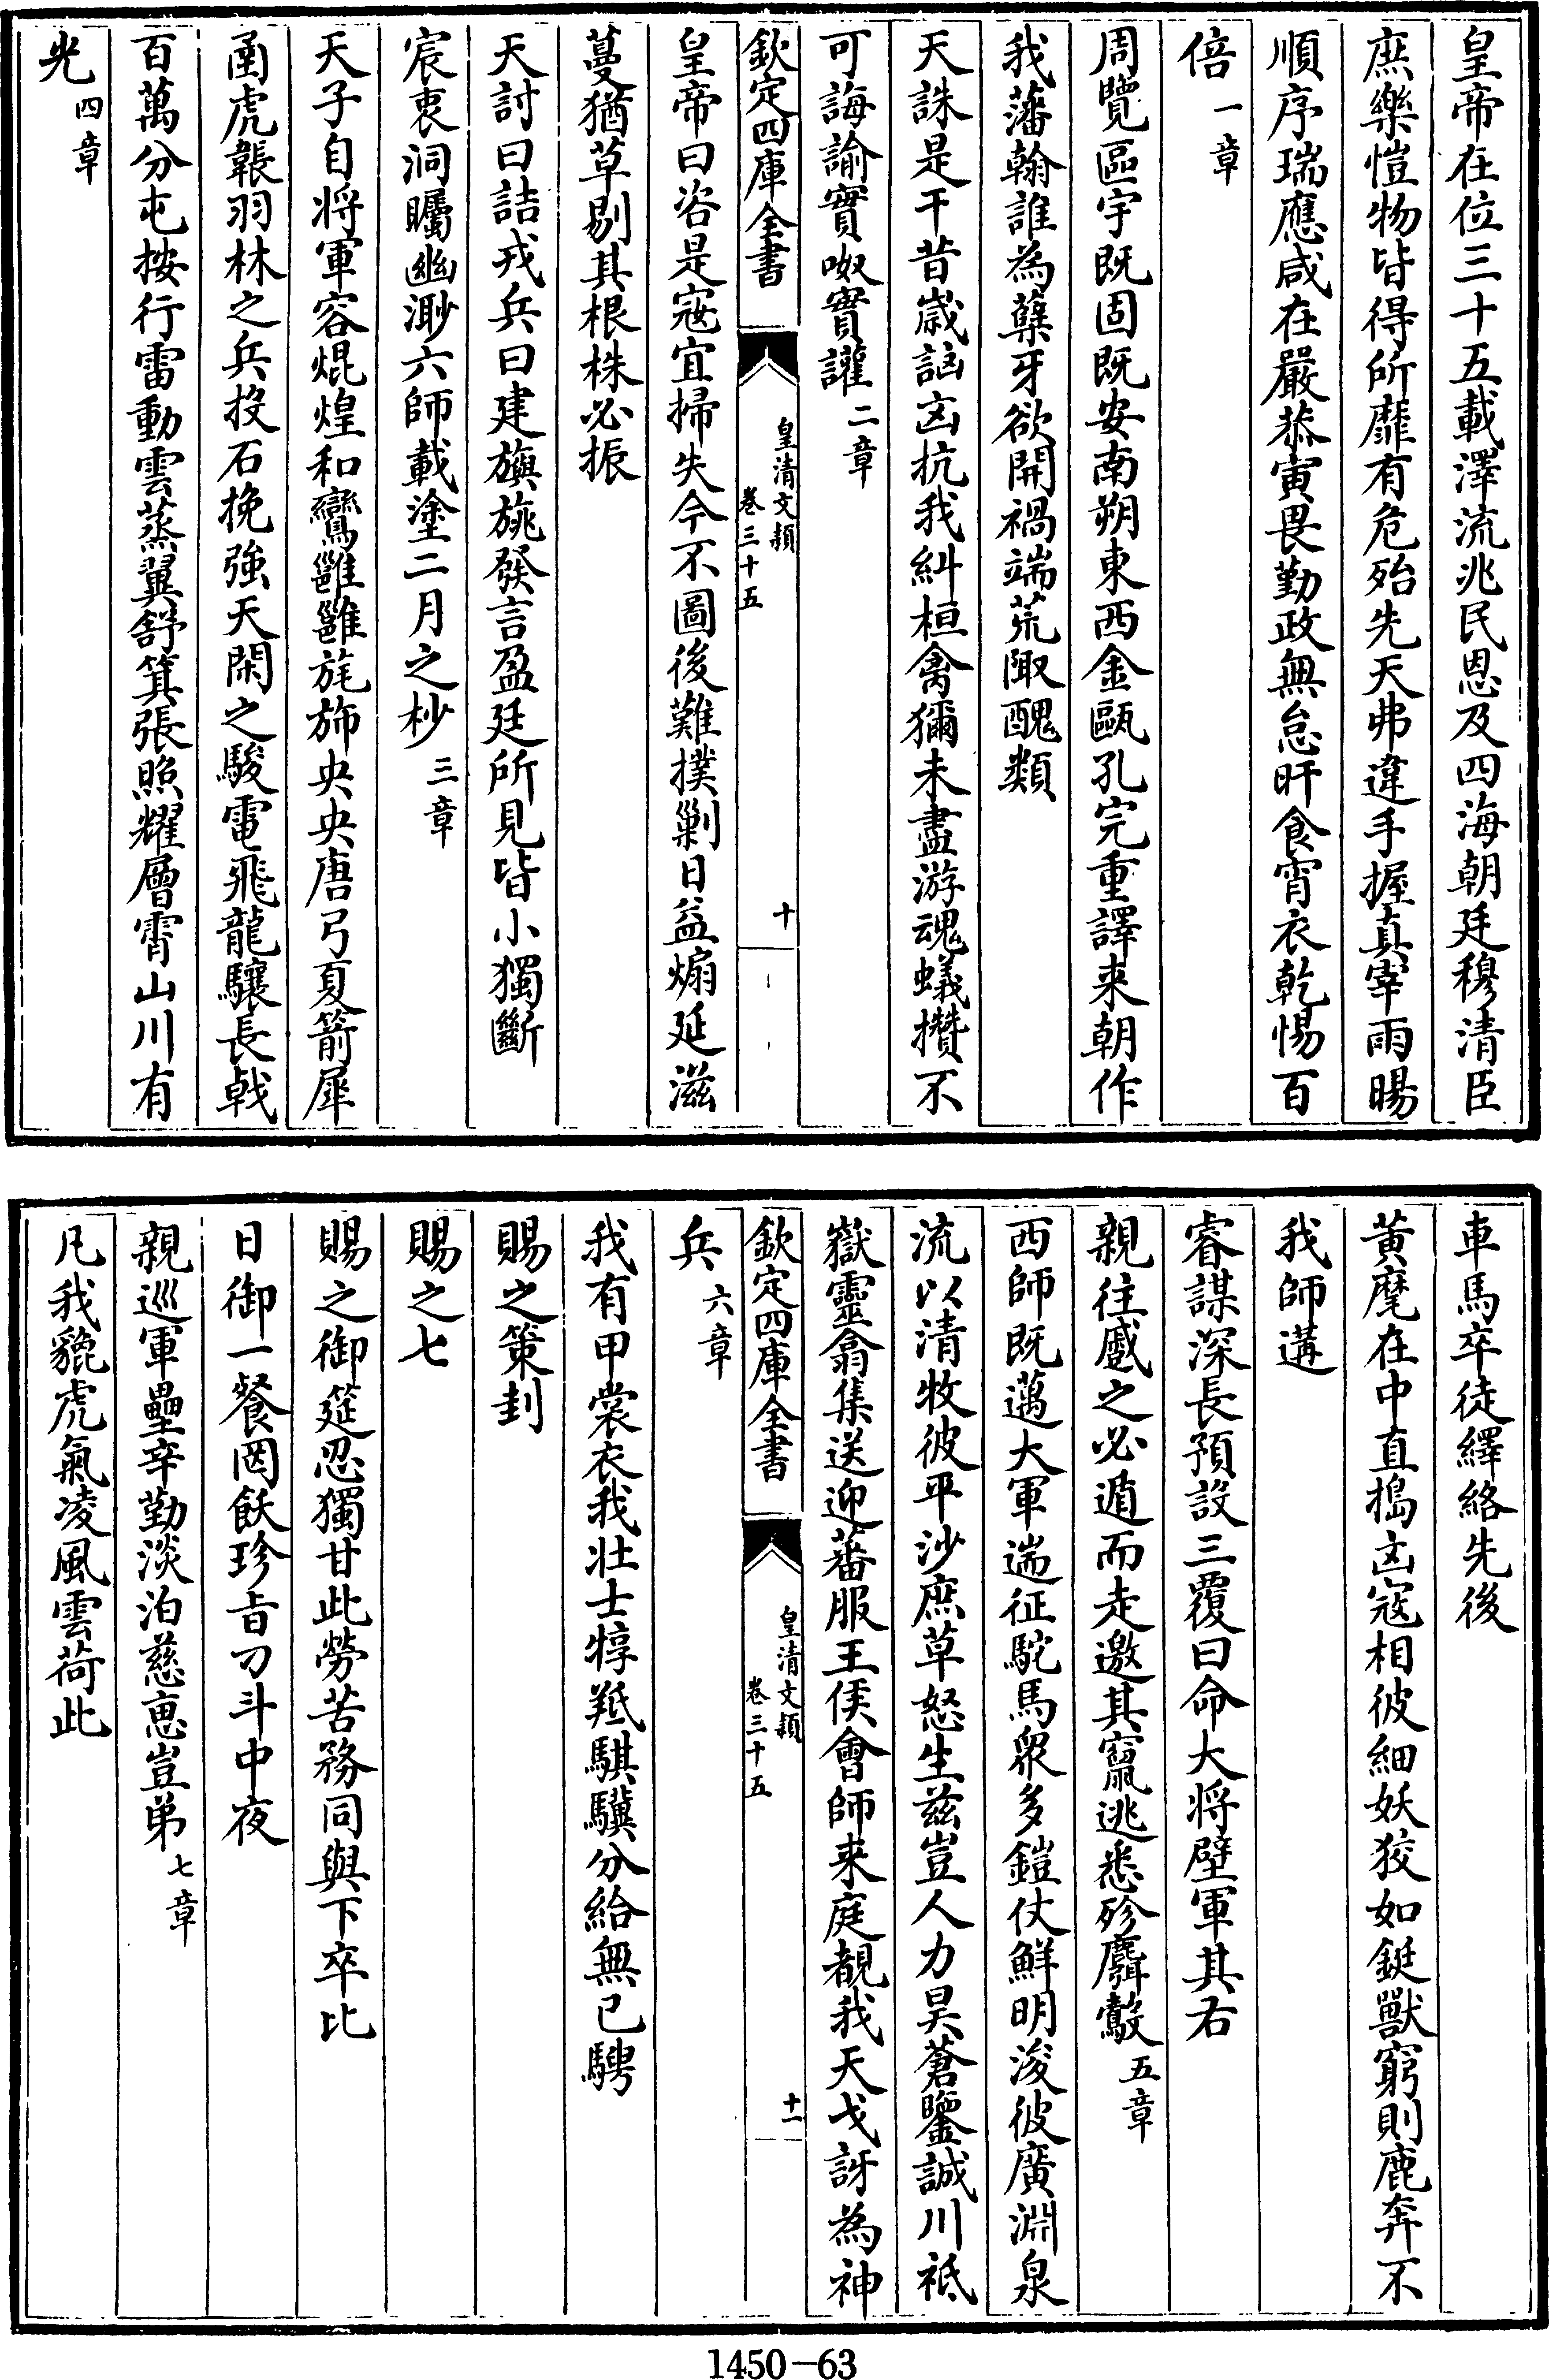 皇帝在位三十五載澤流兆民恩及四海朝廷穆清臣
庶樂愷物皆得所靡有危殆先天弗違手握真宰雨暘
順序瑞應咸在嚴恭寅畏勤政無怠旰食宵衣乾惕百
倍一章
周覽區宇既固既安南朔東西金甌孔完重譯来朝作
我藩翰誰為蘖牙欲開禍端荒陬醜類
天誅是干昔嵗訩凶抗我糾桓禽獮未盡游魂蟻攢不
可誨諭實呶實讙二章
欽定四庫全書
皇清文頴
卷三十五
十
皇帝曰咨是寇宜掃失今不圖後難撲剿日益煽延滋
蔓猶草剔其根株必振
天討曰詰戎兵曰建旟旐發言盈廷所見皆小獨斷
宸衷洞矚幽渺六師載塗二月之杪三章
天子自将軍容焜煌和鸞雝雝旄斾央央唐弓夏箭犀
函虎韔羽林之兵投石挽強天閑之駿電飛龍驤長戟
百萬分屯按行雷動雲蒸翼舒箕張照耀層霄山川有
光四章
車馬卒徒繹絡先後
黃麾在中直搗凶寇相彼細妖狡如鋌獸窮則鹿奔不
我師遘
睿謀深長預設三覆曰命大将壁軍其右
親往蹙之必遁而走邀其竄逃悉殄麛鷇五章
西師既邁大軍遄征駝馬衆多鎧仗鮮明浚彼廣淵泉
流以清牧彼平沙庶草怒生兹豈人力昊蒼鑒誠川祗
嶽靈翕集送迎蕃服王侯會師来庭覩我天戈訝為神
欽定四庫全書
皇清文頴
卷三十五
十一
兵六章
我有甲裳衣我壯士犉羝騏驥分給無已騁
賜之策刲
賜之匕
賜之御筵忍獨甘此勞苦務同與下卒比
日御一餐罔飫珍旨刁斗中夜
親巡軍壘辛勤淡泊慈惠豈弟七章
凡我貔虎氣凌風雲荷此
1450-63